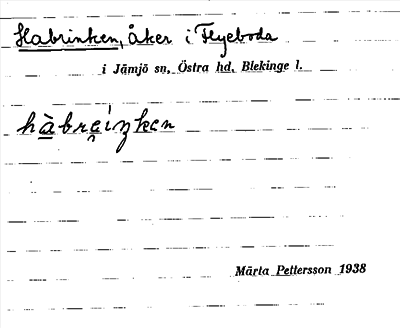 Habrinken, åker i Flyeboda
i Jämjö sn, Östra hd, Blekinge l.
hàbre̯íŋken
Märta Pettersson 1938